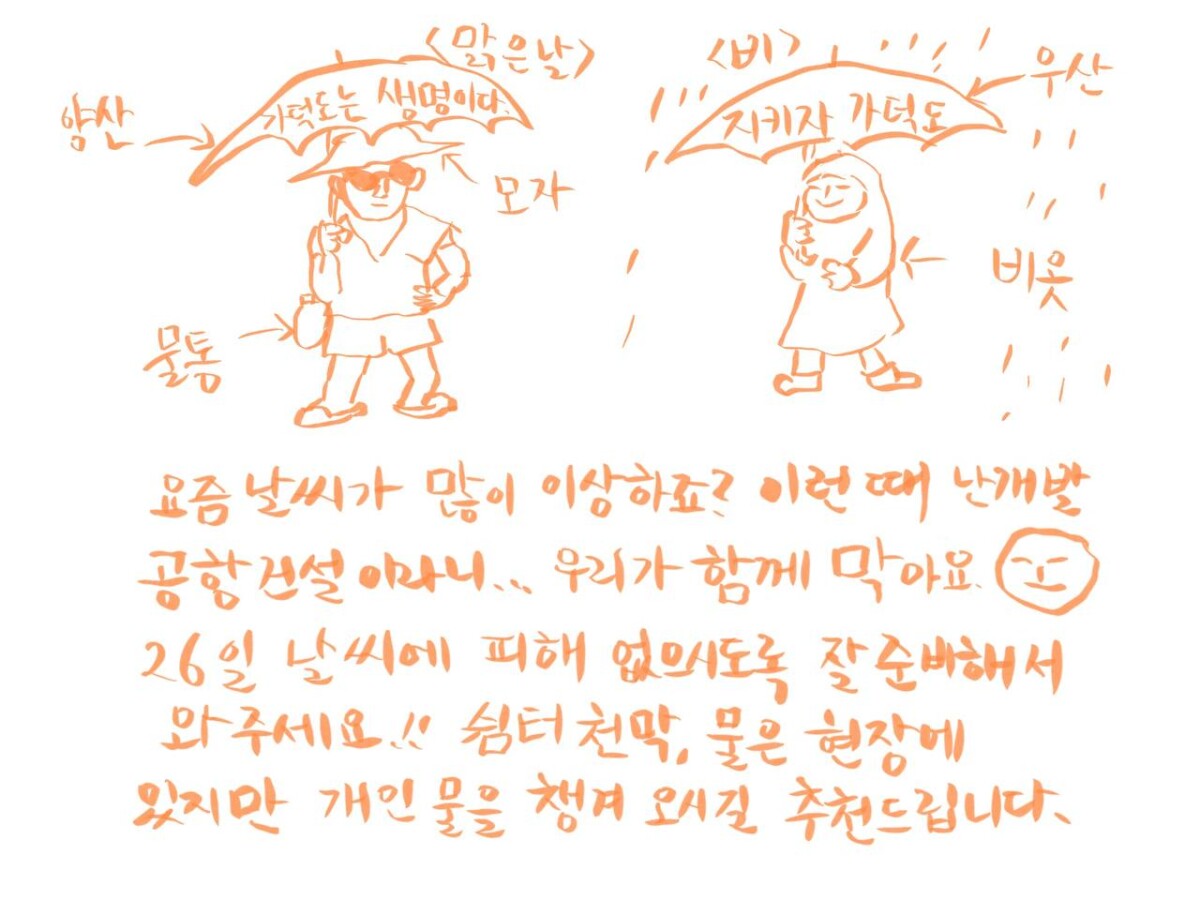 <맑은날>
양산
가덕도는 생명이다.
모자
물통
<비>
우산
지키자 가덕도
비옷
요즘 날씨가 많이 이상하죠? 이런 때 난개발
공항 건설이라니... 우리가 함께 막아요.
26일 날씨에 피해 없으시도록 잘 준비해서
와 주세요!! 쉼터 천막, 물은 현장에
있지만 개인 물을 챙겨 오시길 추천드립니다.